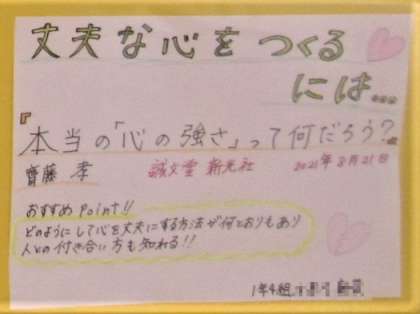 丈夫な心をつくる
には…
『本当の「心の強さ」って何だろう?』
齋藤 孝 誠文堂 新光社 2021年8月21日
おすすめ Point!!
どのようにして心を丈夫にする方法が何とおりもあり
人との付き合い方も知れる!!
1年4組